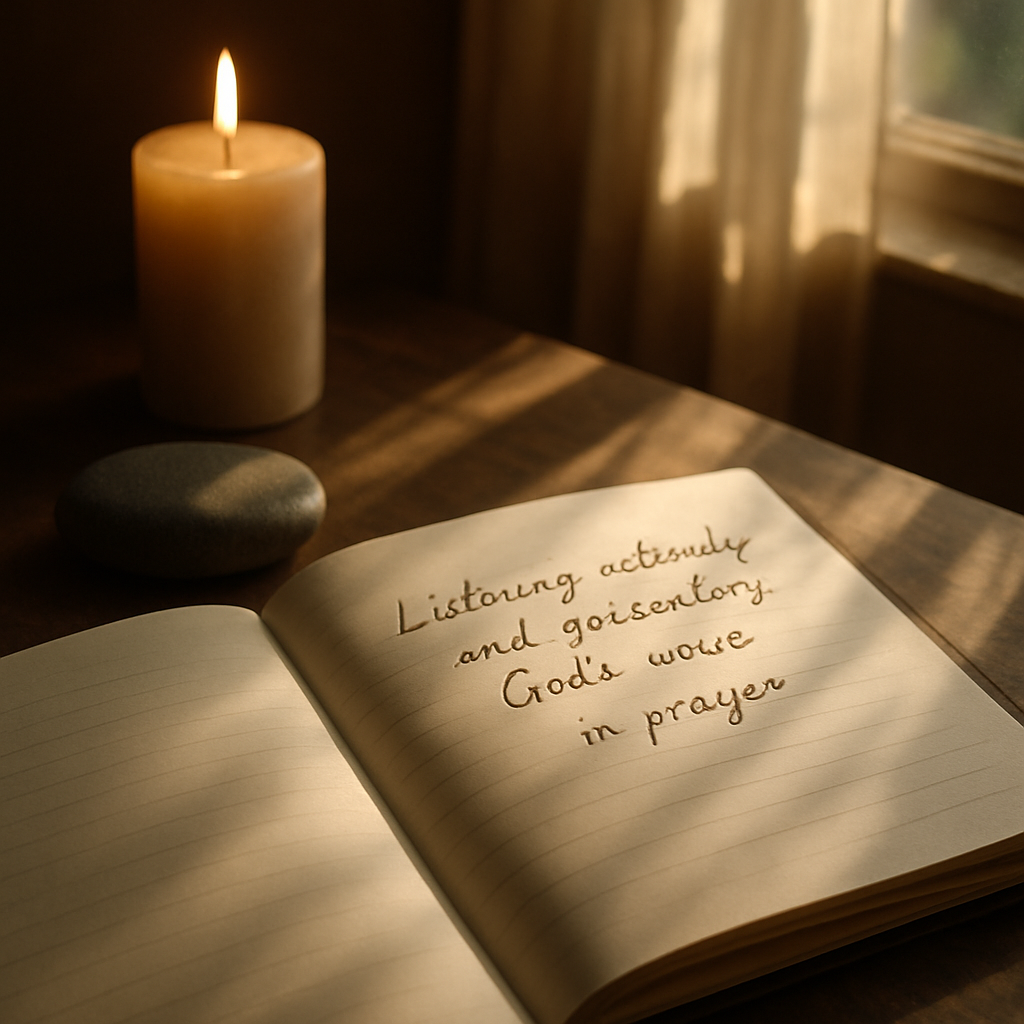 Listouung actisudy
and goisentory.
God's wouse
in prayer